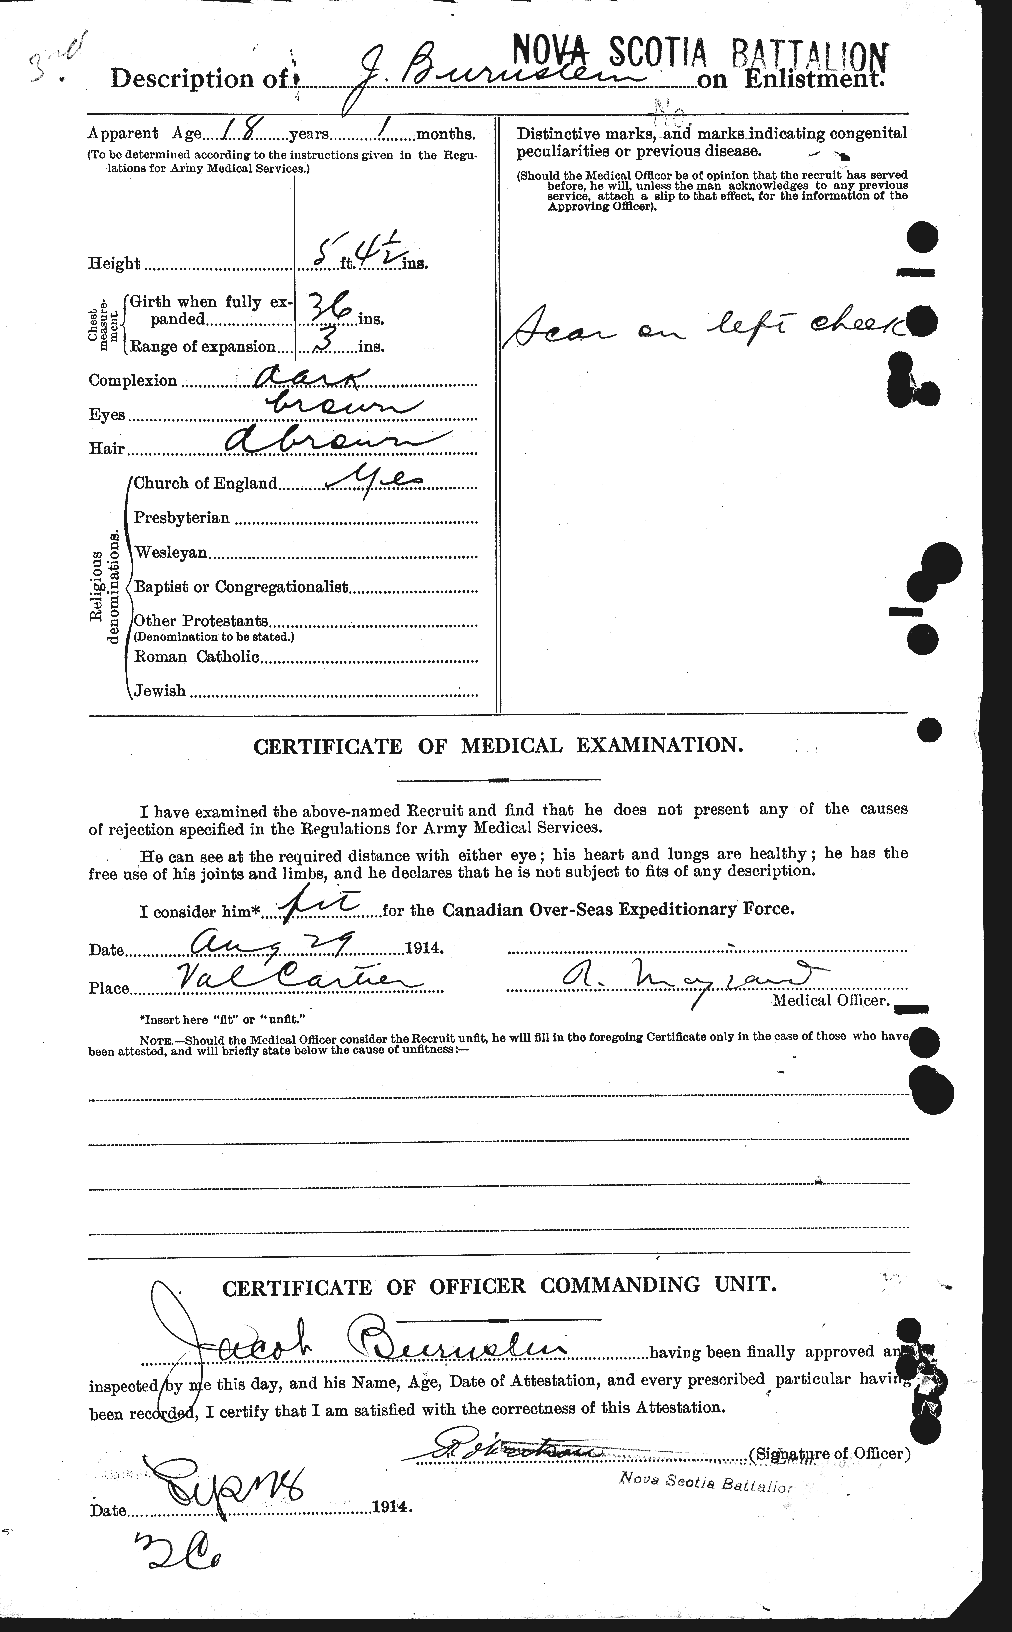 3rd
NOVA SCOTIA BATTALION
Description of J. Burnstein on Enlistment.
Apparent Age 18 years 1 months.
(To be determined according to the instructions given in the Regu-
lations for Army Medical Services.)
Height 5 ft. 4½ ins.
Chest
measure-
ment
Girth when fully ex-
panded 36 ins.
Range of expansion 3 ins.
Complexion dark
Eyes brown
Hair d brown
Religious
denominations.
Church of England Yes
Presbyterian
Wesleyan
Baptist or Congregationalist
Other Protestants
(Denomination to be stated.)
Roman Catholic
Jewish
No.
Distinctive marks, and marks indicating congenital
peculiarities or previous disease.
(Should the Medical Officer be of opinion that the recruit has served
before, he will, unless the man acknowledges to any previous
service, attach a slip to that effect, for the information of the
Approving Officer).
Scar on left cheek
CERTIFICATE OF MEDICAL EXAMINATION.
I have examined the above-named Recruit and find that he does not present any of the causes
of rejection specified in the Regulations for Army Medical Services.
He can see at the required distance with either eye; his heart and lungs are healthy; he has the
free use of his joints and limbs, and he declares that he is not subject to fits of any description.
I consider him* fit for the Canadian Over-Seas Expeditionary Force.
Date Aug 29 1914.
Place Val Cartier
A. Mayrand
Medical Officer.
*Insert here "fit" or "unfit."
NOTE.—Should the Medical Officer consider the Recruit unfit, he will fill in the foregoing Certificate only in the case of those who have
been attested, and will briefly state below the cause of unfitness:—
CERTIFICATE OF OFFICER COMMANDING UNIT.
Jacob Burnstein having been finally approved and
inspected by me this day, and his Name, Age, Date of Attestation, and every prescribed particular having
been recorded, I certify that I am satisfied with the correctness of this Attestation.
(Signature of Officer)
Nova Scotia Battalion
Date 1914.